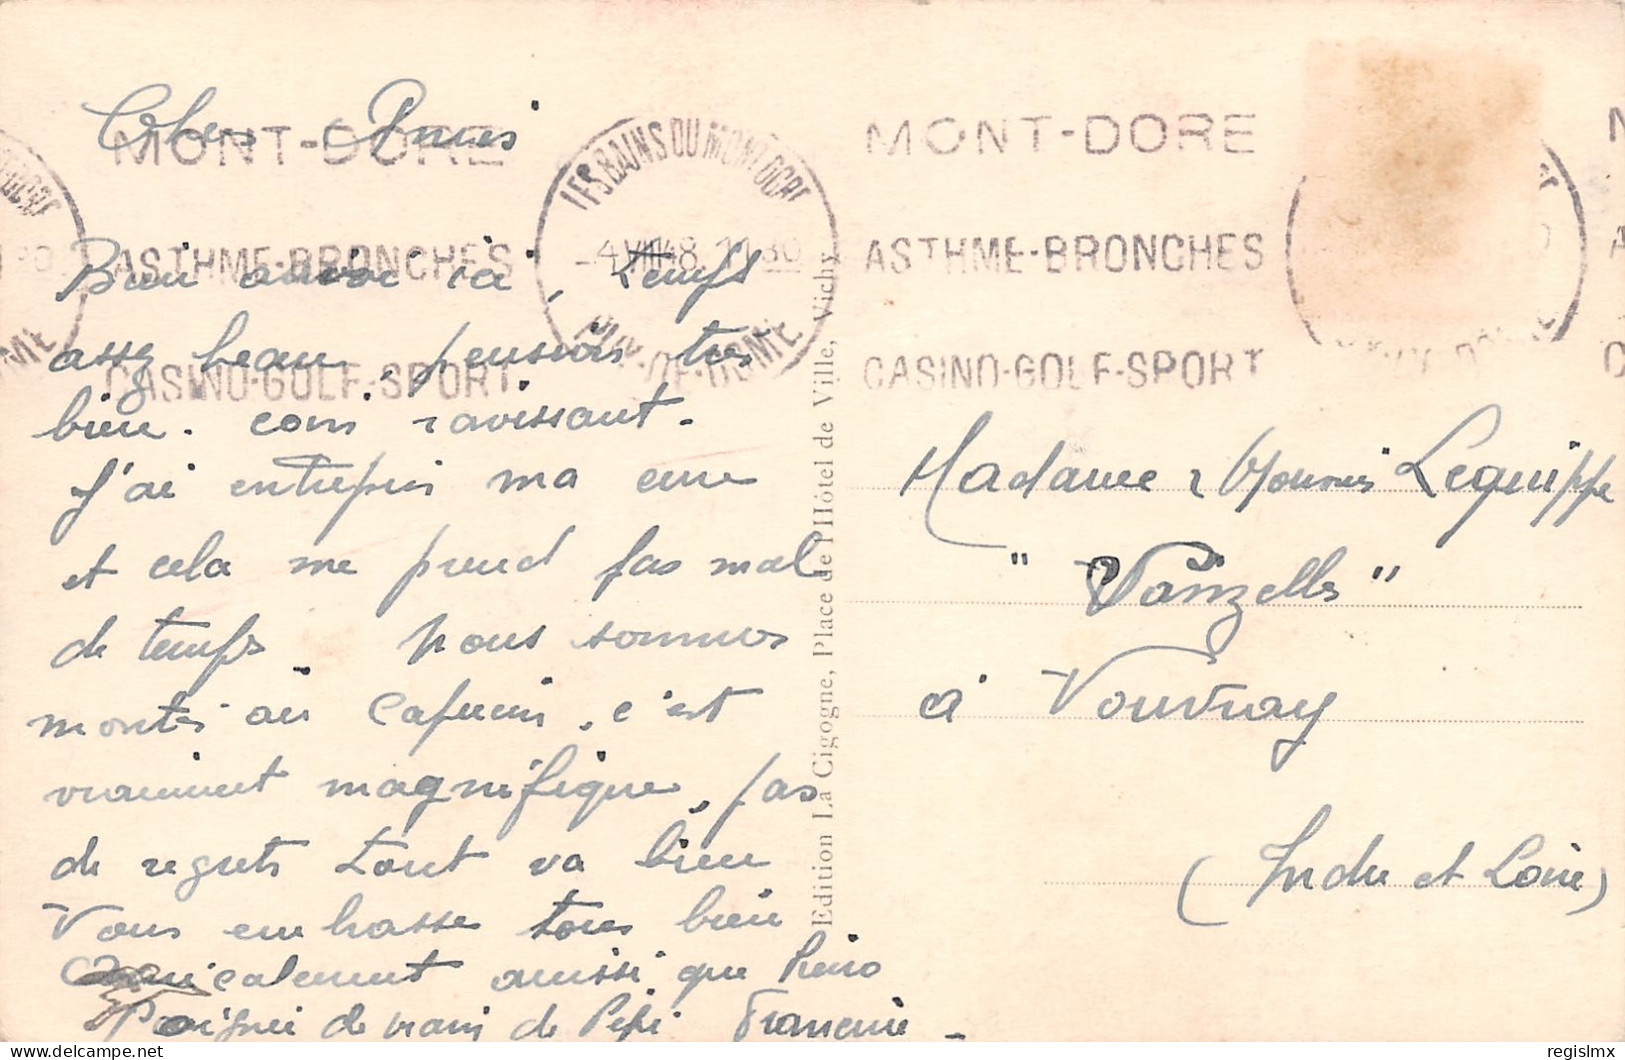 Chers Amis
Bien arrivé ici, temps
assez beau, pension très
bien. coin ravissant.
J'ai entrepris ma cure
et cela me prend pas mal
de temps. Nous sommes
montés au Capucin, c'est
vraiment magnifique, pas
de regrets tout va bien
Vous embrasse tous bien
amicalement aussi que
Poignée de main de Pépé Francine
MONT-DORE
ASTHME-BRONCHES
CASINO-GOLF-SPORT
LES BAINS DU MONT DORE
-4 VIII 48. 11 30
PUY-DE-DOME
MONT-DORE
ASTHME-BRONCHES
CASINO-GOLF-SPORT
Edition La Cigogne, Place de l'Hôtel de Ville, Vichy
Madame Lequippe
"Vanzelles"
à Vouvray
(Indre et Loire)
regislmx